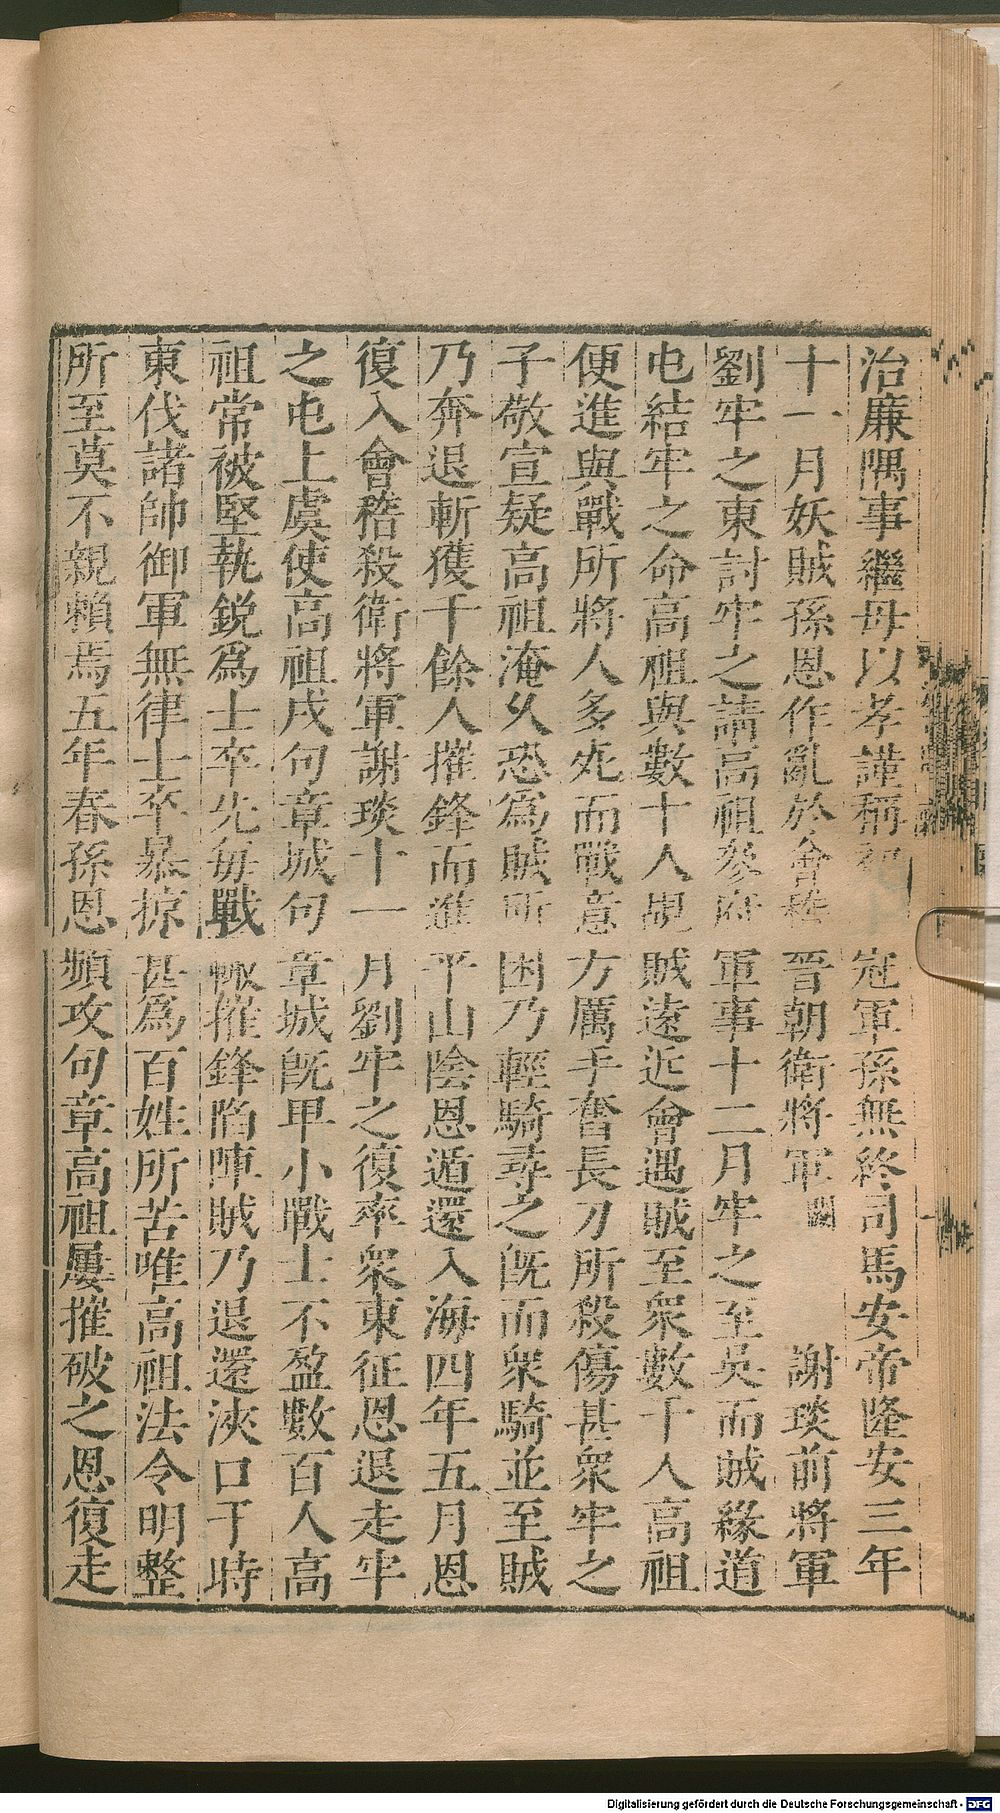 治廉隅事繼母以孝謹稱初冠軍孫無終司馬安帝隆安三年
十一月妖賊孫恩作亂於會稽晉朝衛將軍闕謝琰前將軍
劉牢之東討牢之請高祖參府軍事十二月牢之至吳而賊緣道
屯結牢之命高祖與數十人覘賊遠近會遇賊至衆數千人高祖
便進與戰所將人多死而戰意方厲手奮長刀所殺傷甚衆牢之
子敬宣疑高祖淹久恐爲賊所困乃輕騎尋之旣而衆騎並至賊
乃奔退斬獲千餘人摧鋒而進平山陰恩遁還入海四年五月恩
復入會稽殺衛將軍謝琰十一月劉牢之復率衆東征恩退走牢
之屯上虞使高祖戍句章城句章城旣甲小戰士不盈數百人高
祖常被堅執銳爲士卒先每戰輙摧鋒陷陣賊乃退還浹口于時
東伐諸帥御軍無律士卒暴掠甚爲百姓所苦唯高祖法令明整
所至莫不親賴焉五年春孫恩頻攻句章高祖屢摧破之恩復走
Digitalisierung gefördert durch die Deutsche Forschungsgemeinschaft - DFG